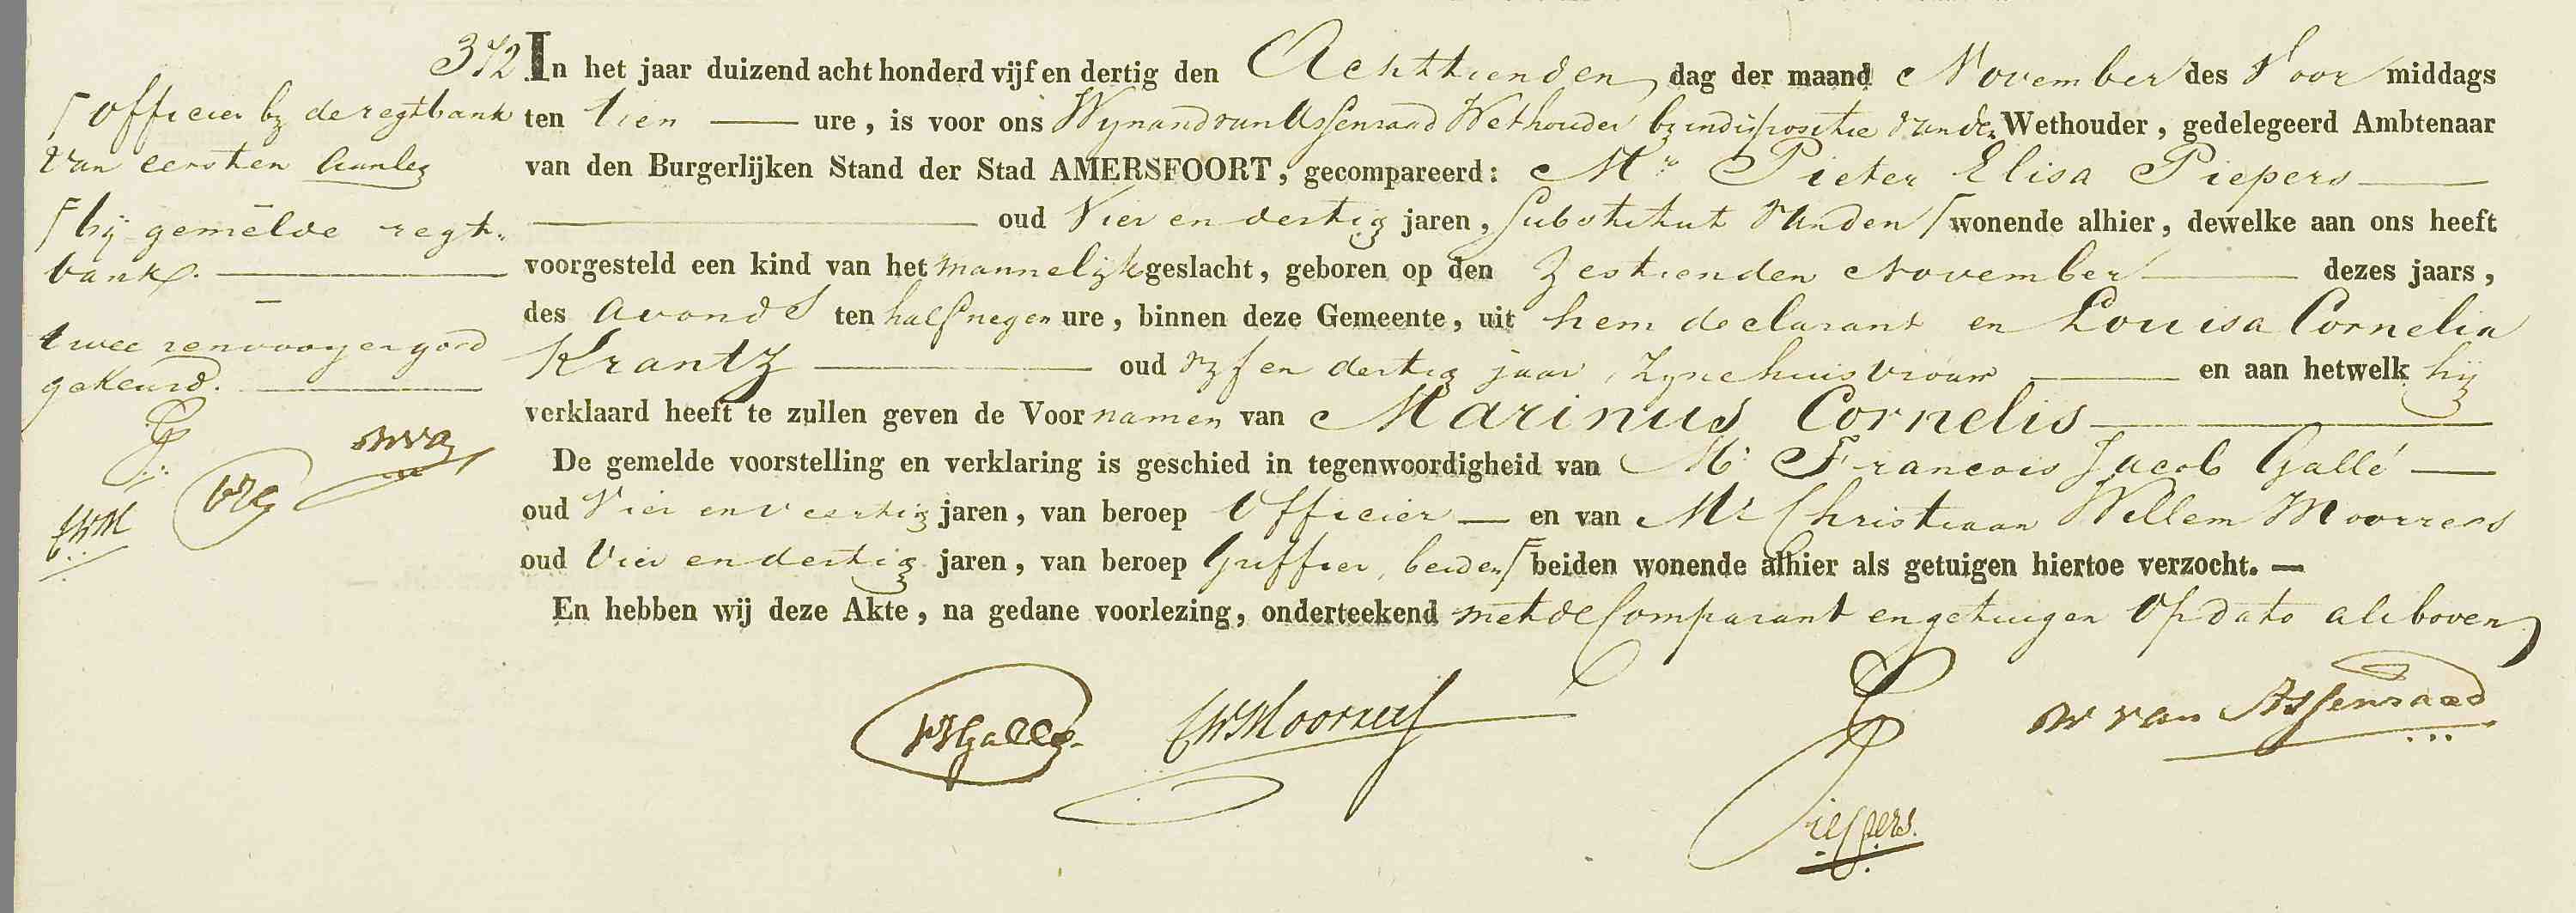 372
In het jaar duizend acht honderd vijf en dertig den Achttienden dag der maand November des Voor middags
ten tien ure, is voor ons Wynand van Assenraad Wethouder by indispositie van den Wethouder, gedelegeerd Ambtenaar
van den Burgerlijken Stand der Stad AMERSFOORT, gecompareerd: Mr. Pieter Elisa Piepers
oud Vier en dertig jaren, Substituut van den wonende alhier, dewelke aan ons heeft
voorgesteld een kind van het mannelijk geslacht, geboren op den Zestienden November dezes jaars,
des avonds ten half negen ure, binnen deze Gemeente, uit hem declarant en Louisa Cornelia
Krantz oud vyf en dertig jaar, Zyne huisvrouw en aan hetwelk hij
verklaard heeft te zullen geven de Voor namen van Marinus Cornelis
De gemelde voorstelling en verklaring is geschied in tegenwoordigheid van Mr. Francois Jacob Gallé
oud Vier en veertig jaren, van beroep Officier en van Mr Christiaan Willem Moorrees
oud Vier en dertig jaren, van beroep Griffier, beiden beiden wonende alhier als getuigen hiertoe verzocht.
En hebben wij deze Akte, na gedane voorlezing, onderteekend met de Comparant en getuigen Op dato als boven
officier by de regtbank
van eersten Aanleg
bij gemelde regt-
bank.
twee renvooyen goed
gekeurd.
WVA
CWM
FJGallé
CWMoorrees
Piepers.
W van Assenraad